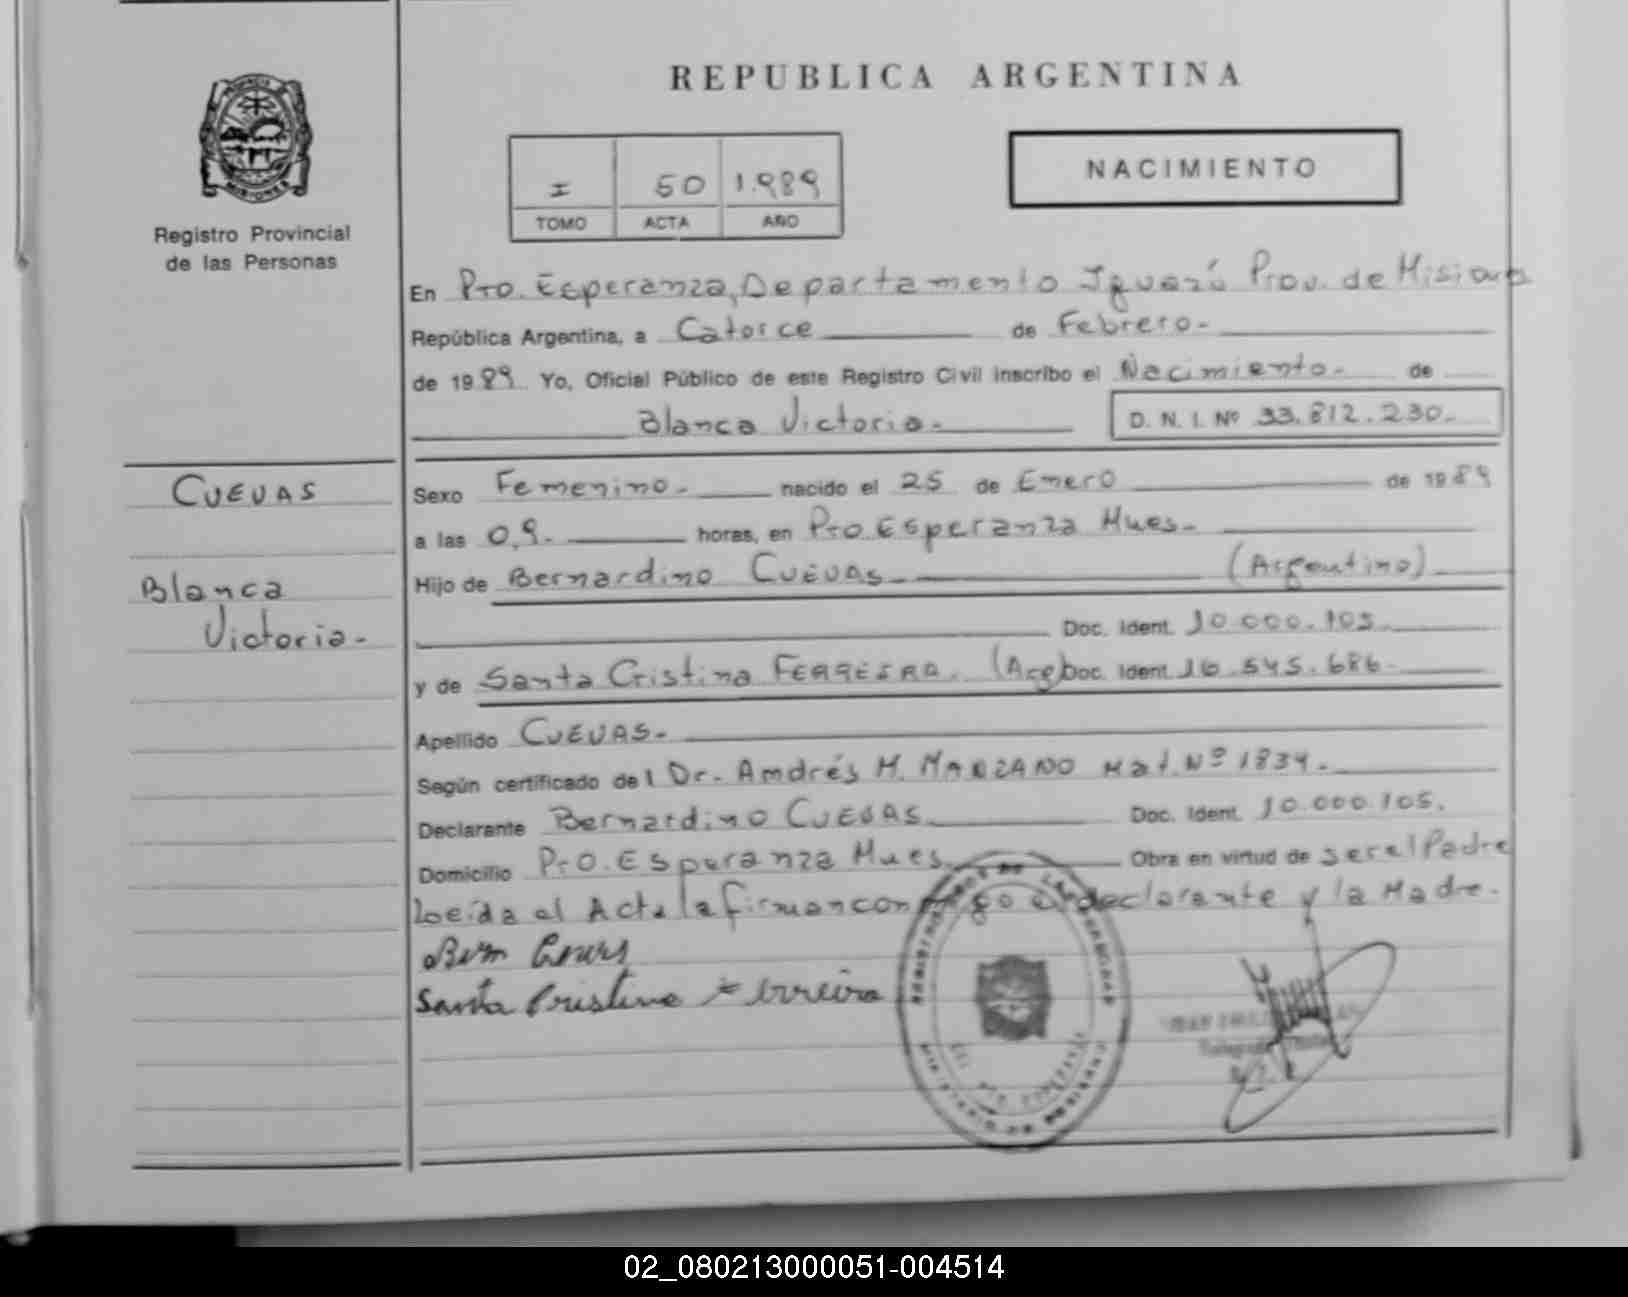 REPUBLICA ARGENTINA
PROVINCIA
MISIONES
Registro Provincial
de las Personas
I 50 1.989
TOMO ACTA AÑO
NACIMIENTO
En Pto. Esperanza, Departamento Iguazú Prov. de Misiones
República Argentina, a Catorce de Febrero-
de 1989 Yo, Oficial Público de este Registro Civil inscribo el Nacimiento- de
Blanca Victoria- D. N. I. Nº 33.812.230-
CUEVAS
Sexo Femenino- nacido el 25 de Enero de 1989
a las 0,9- horas, en Pto. Esperanza Mnes-
Blanca
Victoria-
Hijo de Bernardino CUEVAS- (Argentino)
Doc. Ident. 10.000.105-
y de Santa Cristina FERREIRA. (Arg) Doc. Ident. 16.545.686-
Apellido CUEVAS-
Según certificado del Dr. Andrés M. MANZANO Mat. Nº 1834-
Declarante Bernardino CUEVAS Doc. Ident. 10.000.105.
Domicilio Pto. Esperanza Mnes Obra en virtud de ser el Padre
Leída el Acta la firman conmigo el declarante y la Madre-
Santa Cristina Ferreira
02_080213000051-004514